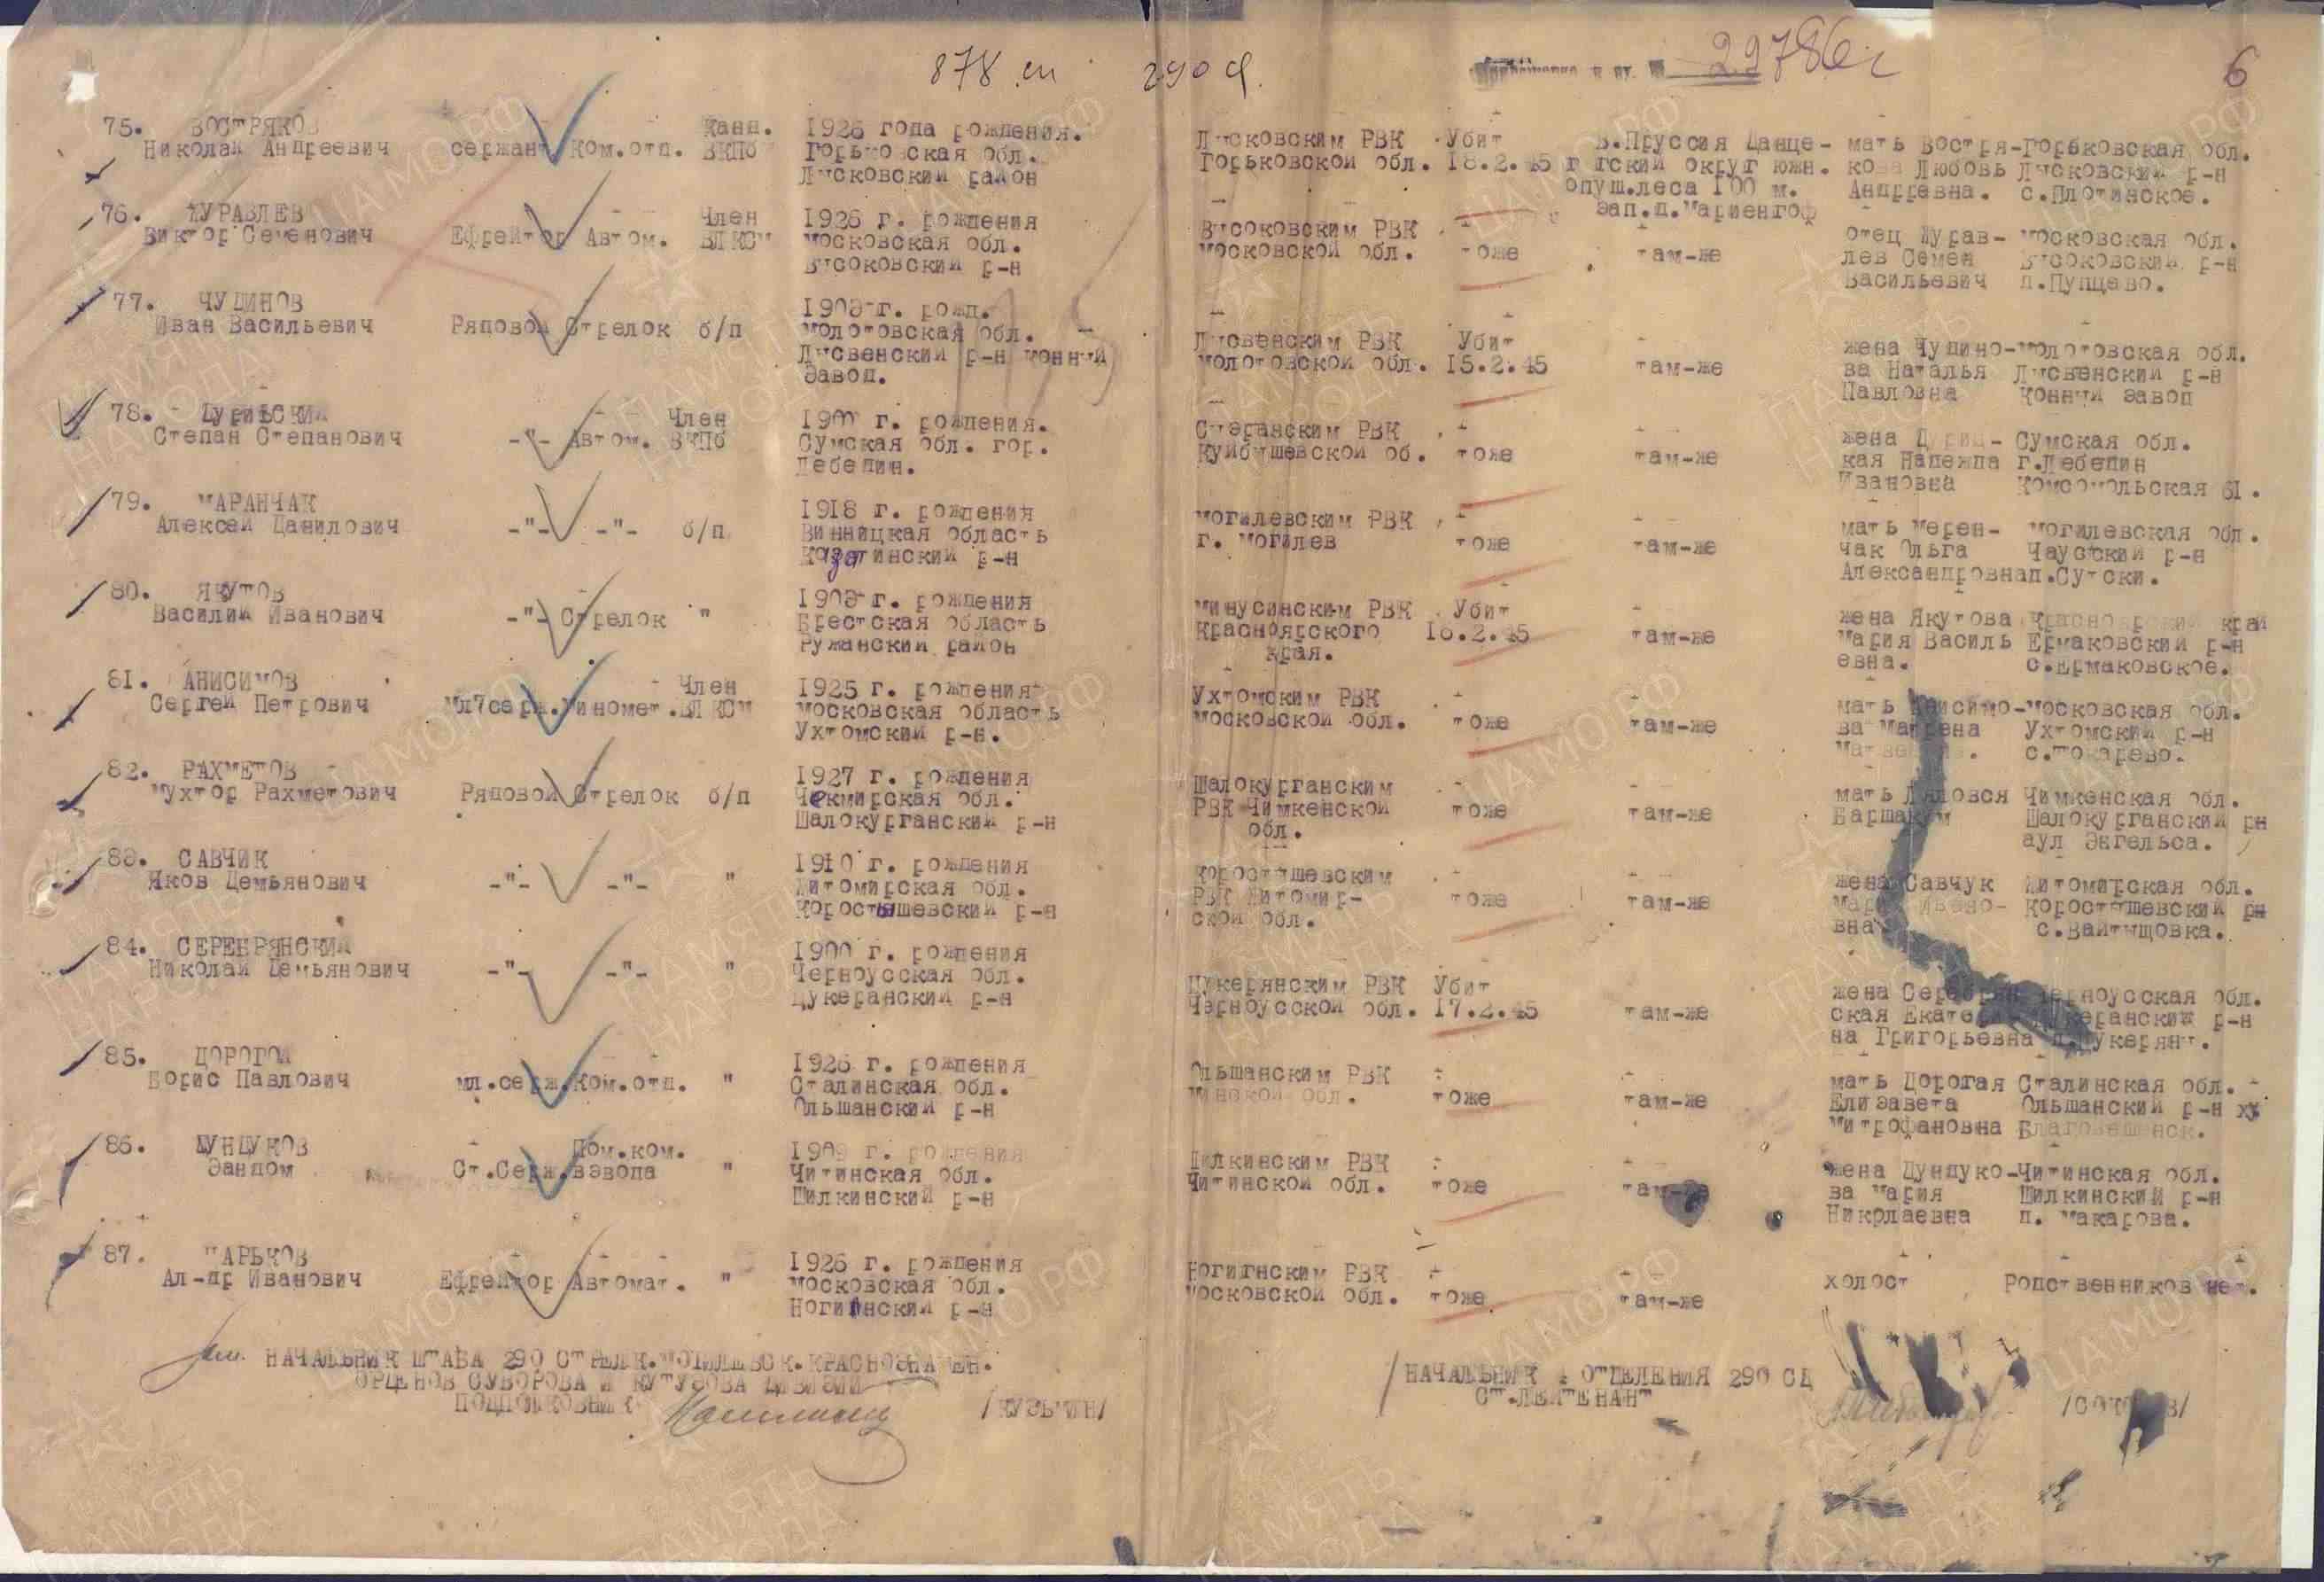 878 сп 290 д.
29786с
6
75. ВОСТРЯКОВ
Николай Андреевич сержант Ком.отд. Канд. ВКПб
1926 года рождения.
Горьковская обл.
Лысковский район
Лысковским РВК Убит
Горьковской обл. 18.2.45
В.Пруссия Данце-
гтский округ южн.
опуш.леса 100 м.
Зап.д.Мариенгоф
мать Востря- Горьковская обл.
кова Любовь Лысковский р-н
Андрревна. с.Плотинское.
76. ЖУРАВЛЕВ
Виктор Семенович Ефрейтор Автом. Член ВЛКСМ
1926 г. рождения
Московская обл.
Высоковский р-н
Высоковским РВК
Московской обл. тоже там-же
отец Журав- Московская обл.
лев Семен Высоковский р-н
Васильевич д.Пупцево.
77. ЧУДИНОВ
Иван Васильевич Рядовой Стрелок б/п
1903 г. рожд.
Молотовская обл.
Лысвенский р-н конный
Завод.
Лысвенским РВК Убит
Молотовской обл. 15.2.45 там-же
жена Чудино- Молотовская обл.
ва Наталья Лысвенский р-н
Павловна Конный завод
78.
Степан Степанович -"- Автом. Член ВКПб
1900 г. рождения.
Сумская обл. гор.
Лебедин.
Сызранским РВК
Куйбышевской об. тоже там-же
жена
кая Надежда г.Лебедин
Сумская обл.
Ивановна Комсомольская 61.
79. МАРАНЧАК
Алексей Данилович -"- -"- б/п
1918 г. рождения
Винницкая область
Казатинский р-н
Могилевским РВК
г. Могилев тоже там-же
мать Мерен- Могилевская обл.
чак Ольга Чаусский р-н
Александровнад.Сутоки.
80. ЯКУТОВ
Василий Иванович -"- Стрелок "
1903 г. рождения
Брестская область
Ружанский район
Минусинским РВК Убит
Красноярского 16.2.45 там-же
края.
жена Якутова Красноярский край
Мария Василь Ермаковский р-н
евна. с.Ермаковское.
81. АНИСИМОВ
Сергей Петрович Мл.серж.Миномет. Член ВЛКСМ
1925 г. рождения
Московская область
Ухтомский р-н.
Ухтомским РВК
Московской обл. тоже там-же
мать Анисимо- Московская обл.
ва Матрена Ухтомский р-н
с.Токарево.
82. РАХМЕТОВ
Мухтор Рахметович Рядовой Стрелок б/п
1927 г. рождения
Чекмирская обл.
Шалокурганский р-н
Шалокурганским
РВК Чимкенской тоже там-же
обл.
мать Чимкенская обл.
Шалокурганский рн
аул Энгельса.
83. САВЧИК
Яков Демьянович -"- -"- "
1910 г. рождения
Житомирская обл.
Коростышевский р-н
Коростышевским
РВК Житомир- тоже там-же
ской обл.
жена Савчук Житомирская обл.
Коростышевский рн
вна с.Вайтыщовка.
84. СЕРЕБРЯНСКИЙ
Николай Демьянович -"- -"- "
1900 г. рождения
Черноусская обл.
Цукеранский р-н
Цукерянским РВК Убит
Черноусской обл. 17.2.45 там-же
жена Серебрян Черноусская обл.
ская Екатери Цукеранский р-н
на Григорьевна д.Цукеряны.
85. ДОРОГОЙ
Борис Павлович мл.серж.Ком.отд. "
1926 г. рождения
Сталинская обл.
Ольшанский р-н
Ольшанским РВК
обл. тоже там-же
мать Дорогая Сталинская обл.
Елизавета Ольшанский р-н ху
Митрофановна Благовещенск.
86. ДУНДУКОВ
Зандом Ст.Серж. Пом.ком. взвода "
1909 г. рождения
Читинская обл.
Шилкинский р-н
Шилкинским РВК
Читинской обл. тоже там-же
жена Дундуко- Читинская обл.
ва Мария Шилкинский р-н
Николаевна д. Макарова.
87. ЦАРЬКОВ
Ал-др Иванович Ефрейтор Автомат. "
1926 г. рождения
Московская обл.
Ногинский р-н
Ногигнским РВК
Московской обл. тоже там-же
холост Родственников нет.
Зам. НАЧАЛЬНИК ШТАБА 290 СТРЕЛК.МОГИЛЕВСК.КРАСНОЗНАМЕН.
ОРДЕНОВ СУВОРОВА И КУТУЗОВА ДИВИЗИИ
ПОДПОЛКОВНИК /КУЗЬМИН/
/НАЧАЛЬНИК 4 ОТДЕЛЕНИЯ 290 СД
СТ.ЛЕЙТЕНАНТ